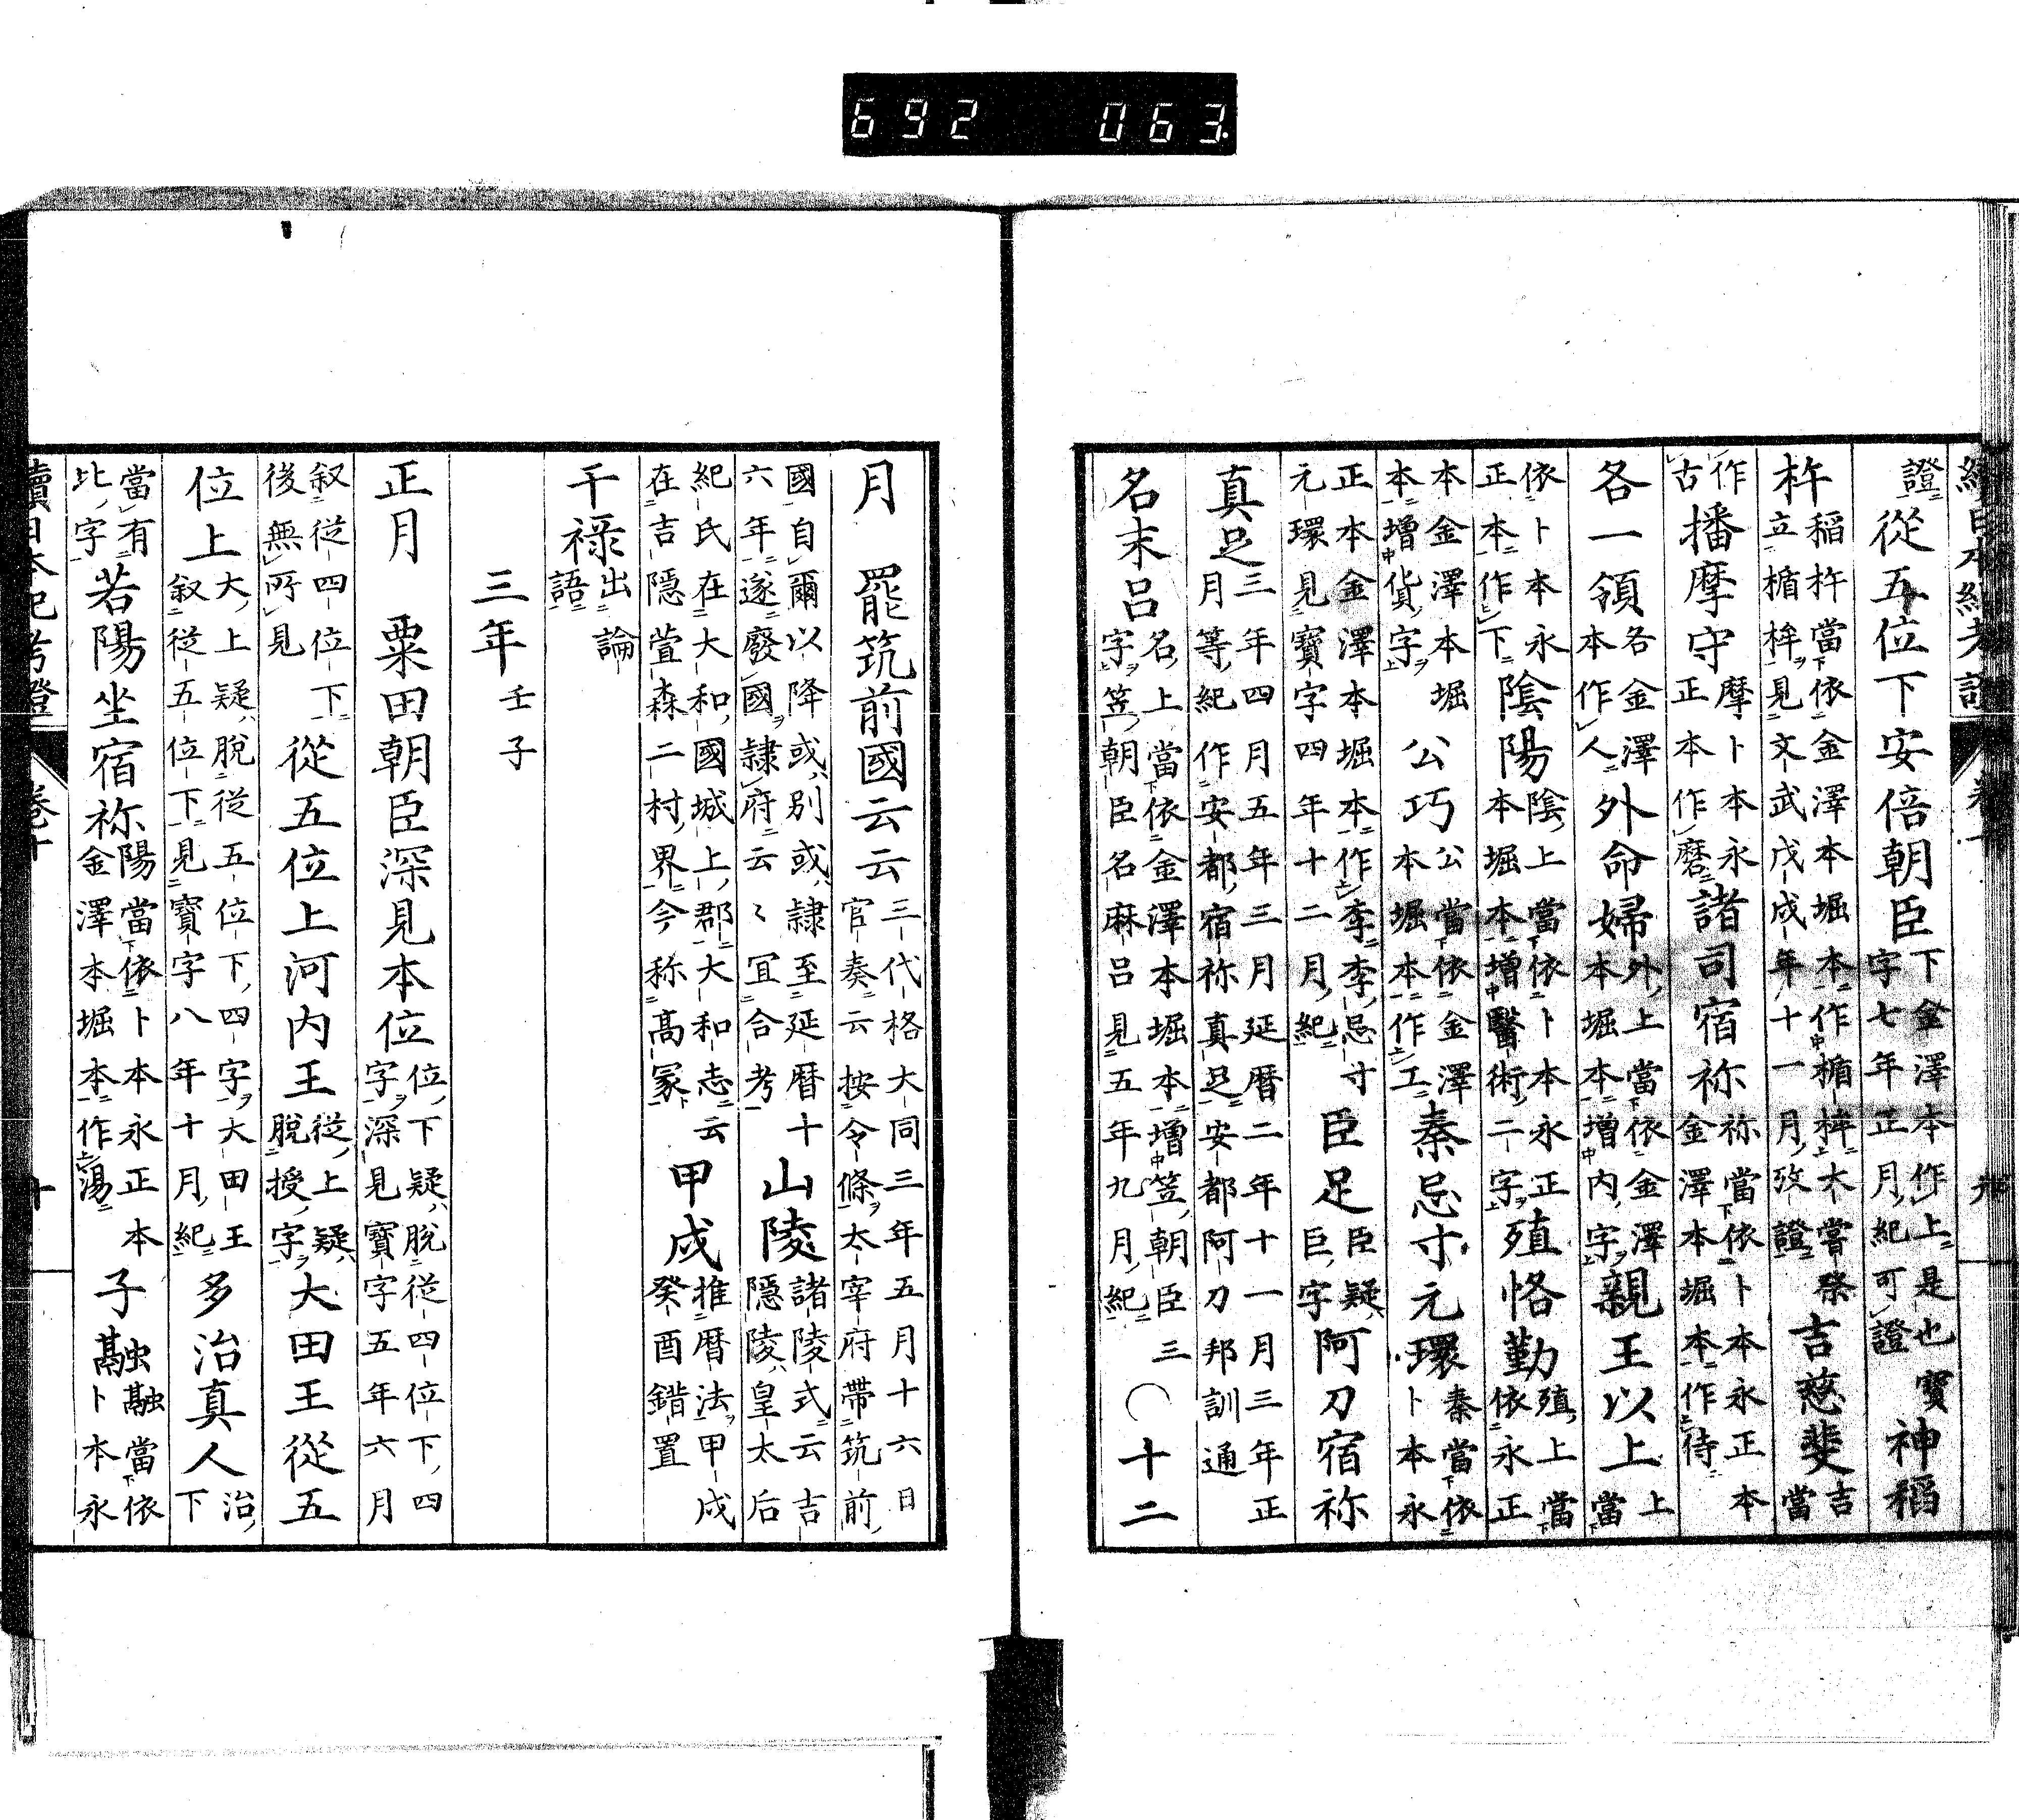 692 063
證従五位下安倍朝臣下金澤本作上是也寶字七年正月紀可證神稻
杵稲杵當依金澤本堀本作楯桙大嘗祭立楯桙見文武戊戌年十一月攷證吉慈斐吉當
作古播摩守摩卜本永正本作磨諸司宿祢祢當依卜本永正本金澤本堀本作待
各一領各金澤本作人外命婦外上當依金澤本堀本増内字親王以上上當
依卜本永正本作下陰陽陰上當依卜本永正本堀本増醫術二字殖恪勤殖上當依永正
本金澤本堀本増貨字公巧公當依金澤本堀本作工秦忌寸元環秦當依卜本永
正本金澤本堀本作李李忌寸元環見寶字四年十二月紀臣足臣疑巨字阿刀宿祢
真足三年四月五年三月延暦二年十一月三年正月等紀作安都宿祢真足安都阿刀邦訓通
名末呂名上當依金澤本堀本増笠朝臣三字笠朝臣名麻呂見五年九月紀〇十二
月罷筑前國云云三代格大同三年五月十六日官奏云按令條太宰府帶筑前
國自爾以降或別或隷至延暦十六年遂廢國隷府云〻冝合考山陵諸陵式云吉隠陵皇太后
紀氏在大和國城上郡大和志云在吉隠萱森二村界今称髙冢甲戌推暦法甲戌癸酉錯置
干禄出論語
三年壬子
正月粟田朝臣深見本位位下疑脱従四位下四字深見寶字五年六月
叙従四位下後無所見從五位上河内王従上疑脱授字大田王從五
位上大上疑脱従五位下四字大田王叙従五位下見寶字八年十月紀多治真人治下
當有比字若陽坐宿祢陽當依卜本永正本金澤本堀本作湯子融融當依卜本永
續日本紀考證 巻十 十